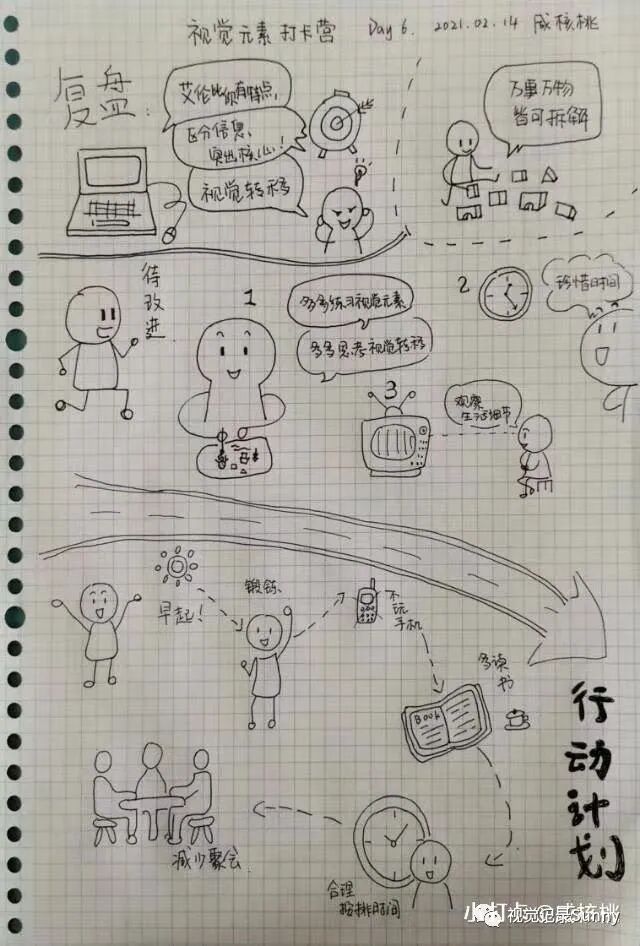 视觉元素打卡营 Day 6. 2021.02.14 咸核桃
复盘:
艾伦比较有特点,
区分信息、
突出核心!
视觉转移
万事万物
皆可拆解
待改进
1
多多练习视觉元素
多多思考视觉转移
2
珍惜时间
3
观察
生活细节
早起!
锻炼
不玩
手机
多读
书
Book
行动计划
合理
安排时间
减少聚会
小打卡@咸核桃
视觉记录Sunny